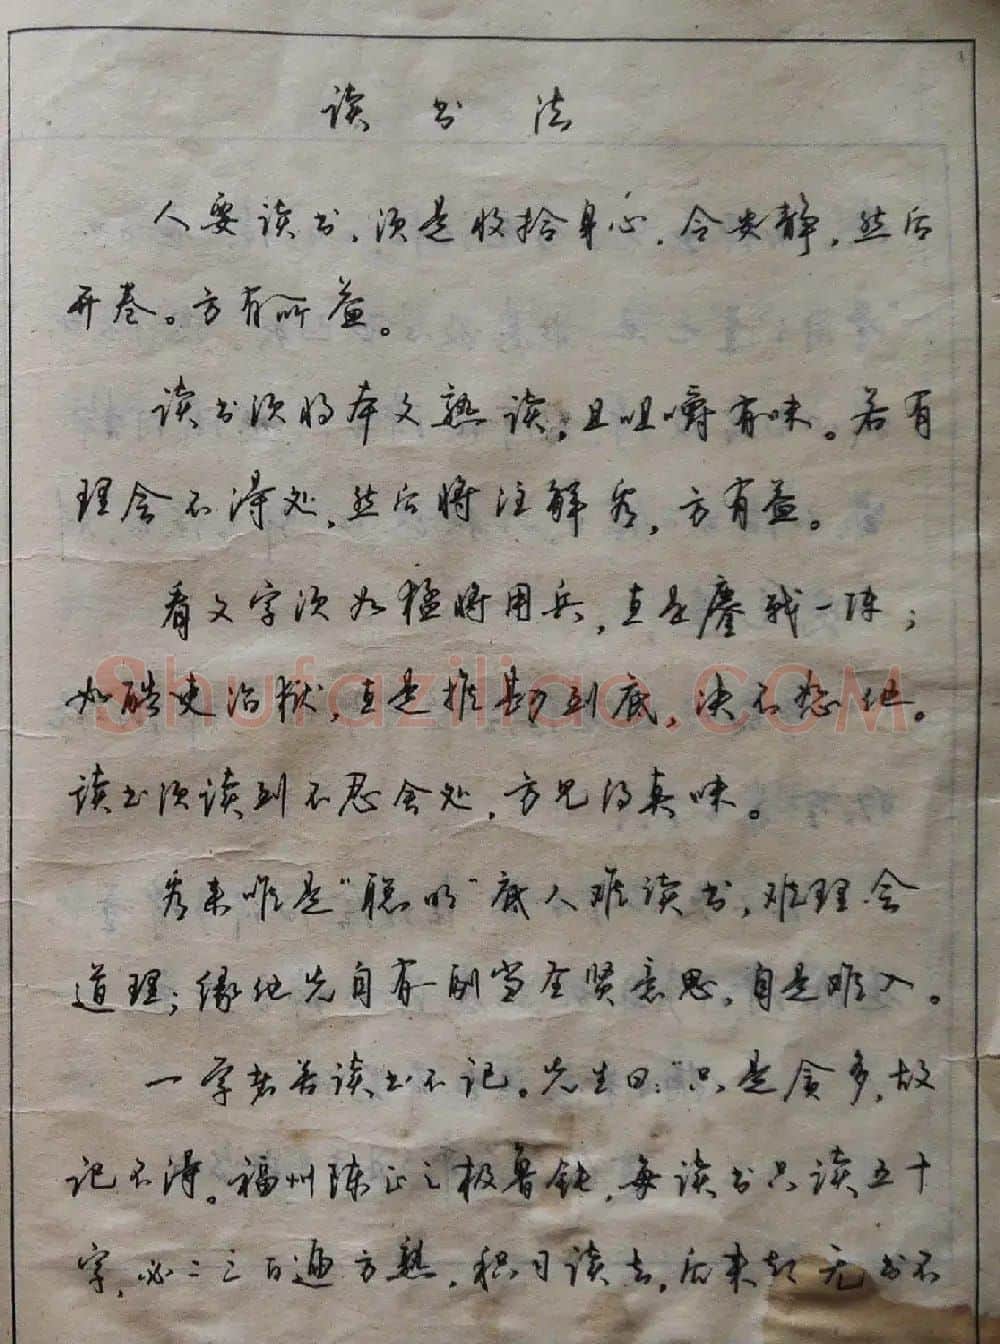 读书法
人要读书，须是收拾身心，令安静，然后
开卷。方有所益。
读书须将本文熟读，且咀嚼有味。若有
理会不得处，然后将注解看，方有益。
看文字须如猛将用兵，直是鏖战一阵；
如酷吏治狱，直是推勘到底，决不恕他。
读书须读到不忍舍处，方见得真味。
看来唯是“聪明”底人难读书，难理会
道理；缘他先自有一副当圣贤意思，自是难入。
一学者苦读书不记。先生曰：“只是贪多，故
记不得。福州陈正之极鲁钝，每读书只读五十
字，必二三百遍方熟，积日读去，后来却无书不
shufaziliao.COM